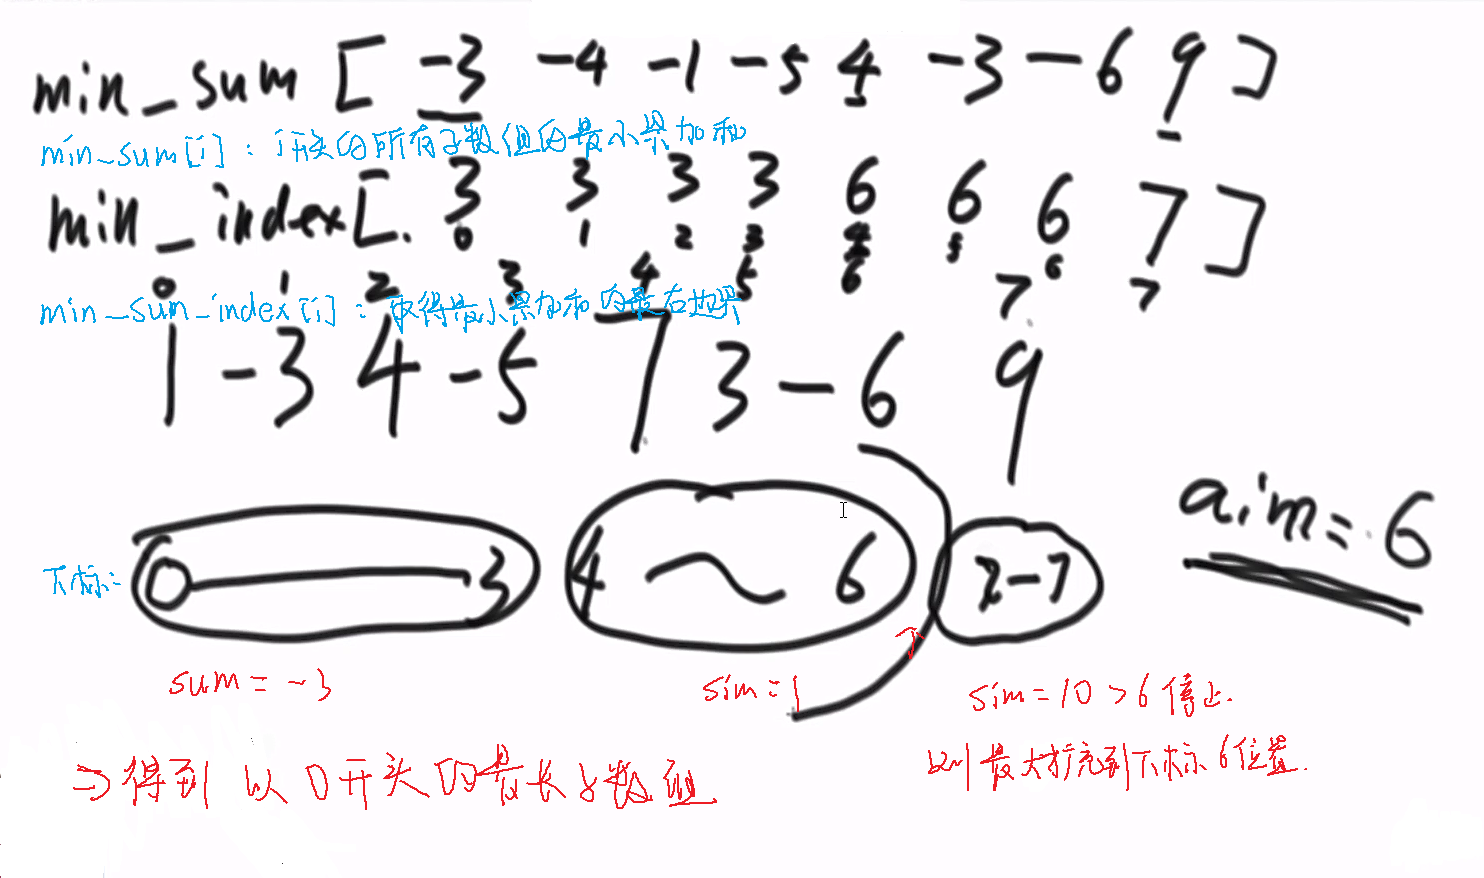 min_sum [ -3 -4 -1 -5 4 -3 -6 9 ]
min_sum[i] : i开头的所有子数组的最小累加和
min_index[. 3 3 3 3 6 6 6 7 ]
0 1 2 3 4 5 6 7
0 1 2 3 4 5 6 7
min_sum_index[i] : 取得最小累加和的最右边界
1 -3 4 -5 7 3 -6 9
aim = 6
下标: 0 3 4 ~ 6 7-7
sum = -3 sim = 1 sim = 10 > 6 停止.
以 最大扩充到下标6位置.
⇒ 得到 以 0 开头的最长子数组